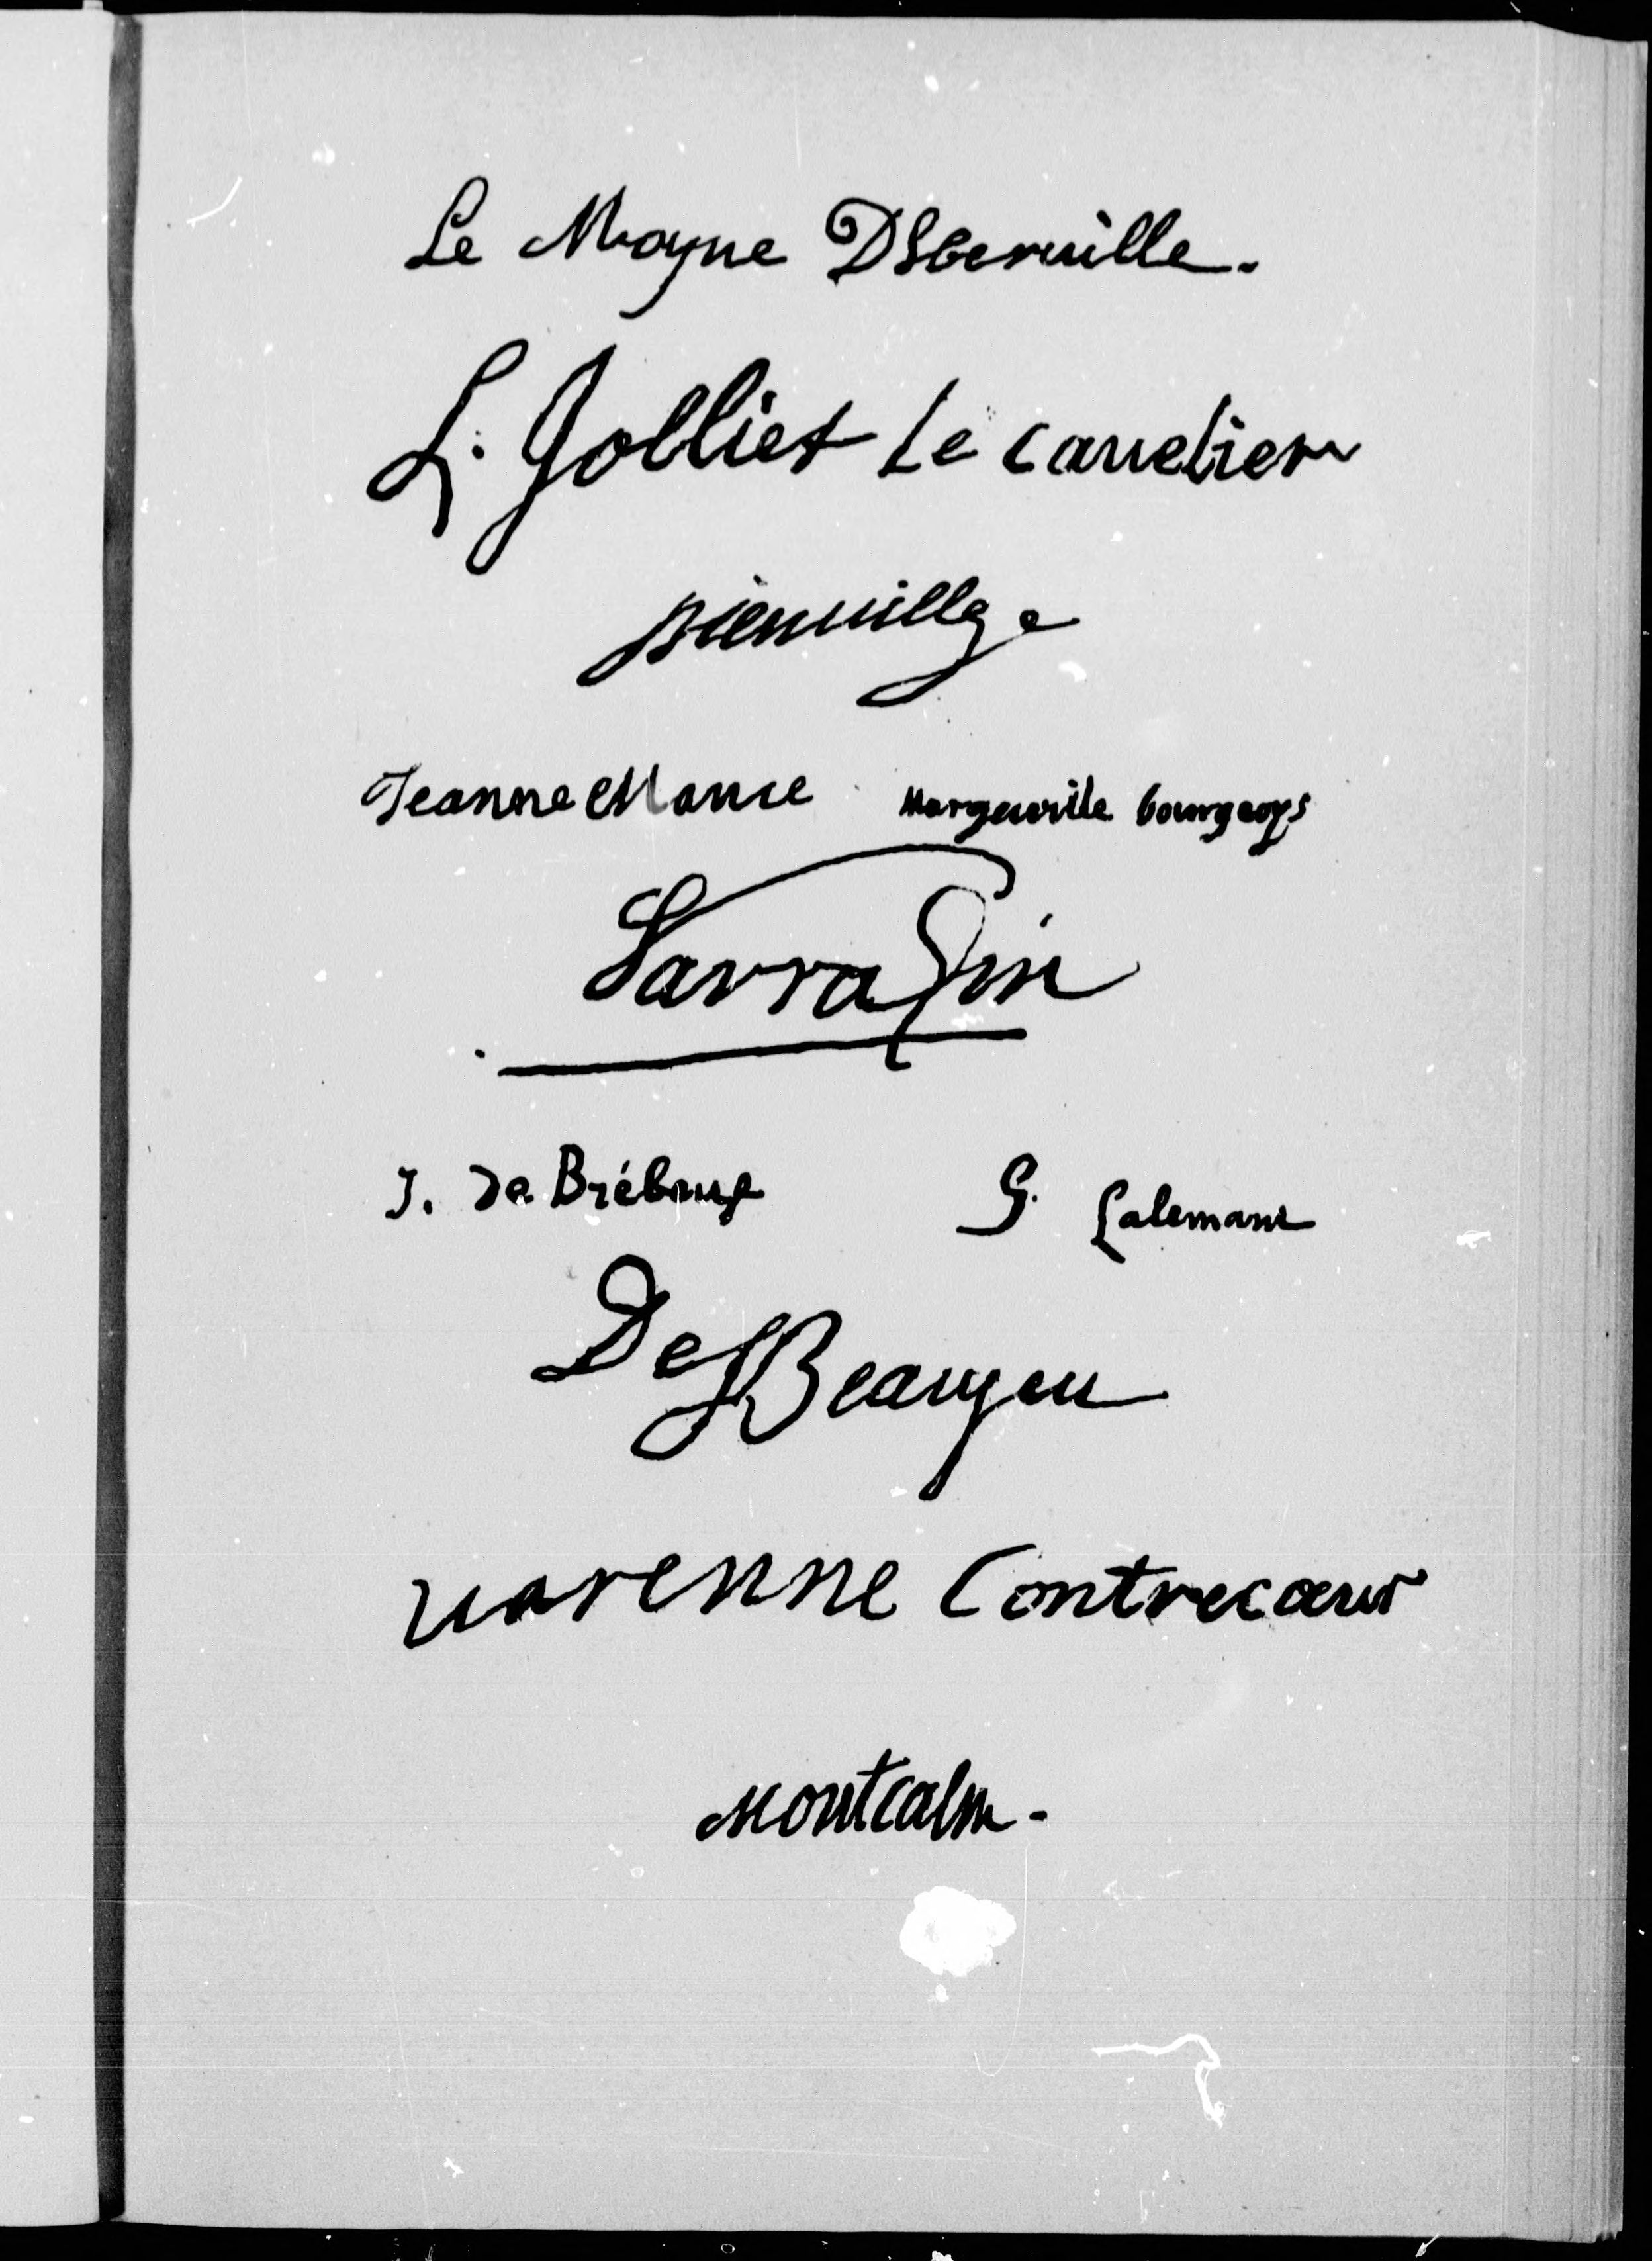 Le Moyne DIberuille.
L. Jolliet Le cauelier
Jeanne Mance Marguerite bourgeoys
Sarrasin
J. De Brébeuf G. Lalemant
De Beaujeu
varenne Contrecœur
Montcalm.